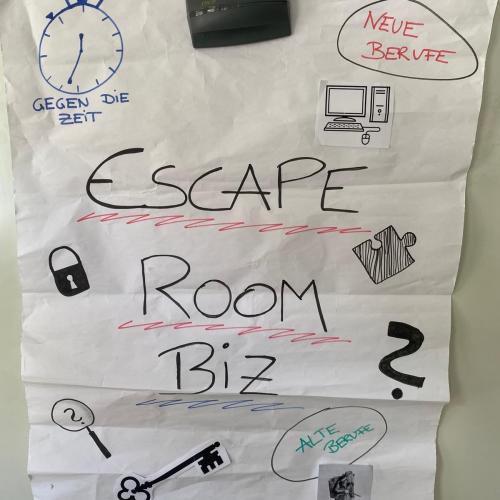 NEUE
BERUFE
GEGEN DIE
ZEIT
ESCAPE
ROOM
BiZ
?
?
ALTE
BERUFE